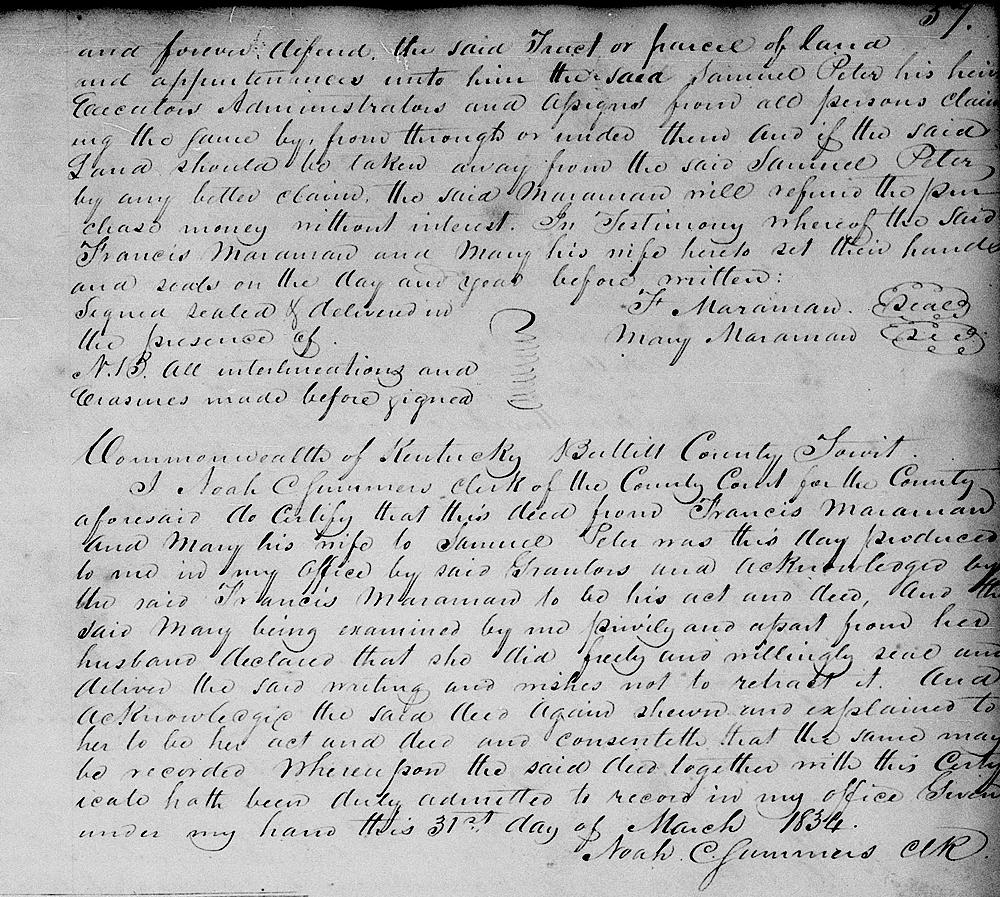 57.
and forever defend the said Tract or parcel of land
and appurtenances unto him the said Samuel Peter his heirs
Executors Administrators and Assigns from all persons claim
ing the same by, from through or under them and if the said
Land should be taken away from the said Samuel Peter
by any better claim, the said Maraman will refund the pur
chase money without interest. In Testimony whereof the said
Francis Maraman and Mary his wife hereto set their hands
and seals on the day and year before written:
Signed sealed & delivered in F Maraman. Seal
the presence of. Mary Maraman Seal
N.B. All interlineations and
Erasures made before signed
Commonwealth of Kentucky Bullitt County Towit.
I Noah C Summers clerk of the County Court for the County
aforesaid do Certify that this deed from Francis Maraman
and Mary his wife to Samuel Peter was this day produced
to me in my office by said Grantors and acknowledged by
the said Francis Maraman to be his act and deed, And the
said Mary being examined by me privily and apart from her
husband declared that she did freely and willingly seal and
deliver the said writing and wishes not to retract it. And
acknowledge the said deed again shewn and explained to
her to be her act and deed and consenteth that the same may
be recorded Whereupon the said deed together with this Certif
icate hath been duly admitted to record in my office Given
under my hand this 31st day of March 1834.
Noah. C. Summers Clk